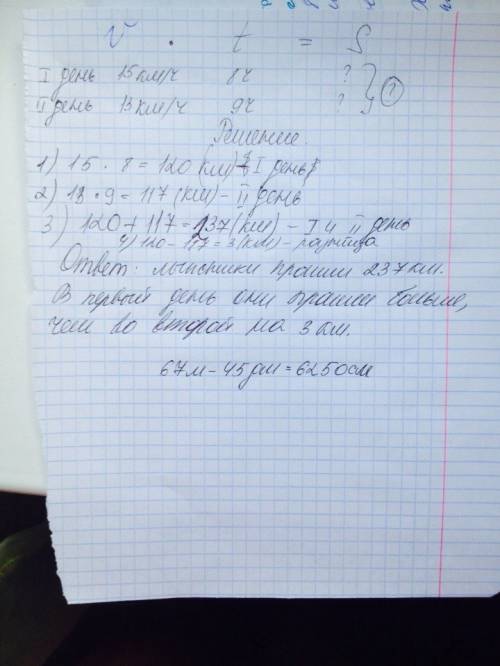 V · t = S
I день 15км/ч 8ч ?
II день 13км/ч 9ч ? ?
Решение.
1) 15 · 8 = 120 (км) - I день
2) 13 · 9 = 117 (км) - II день
3) 120 + 117 = 237 (км) - I и II день
4) 120 - 117 = 3 (км) - разница
Ответ: лыжники прошли 237 км.
В первый день они прошли больше,
чем во второй на 3 км.
67м - 45дм = 6250см